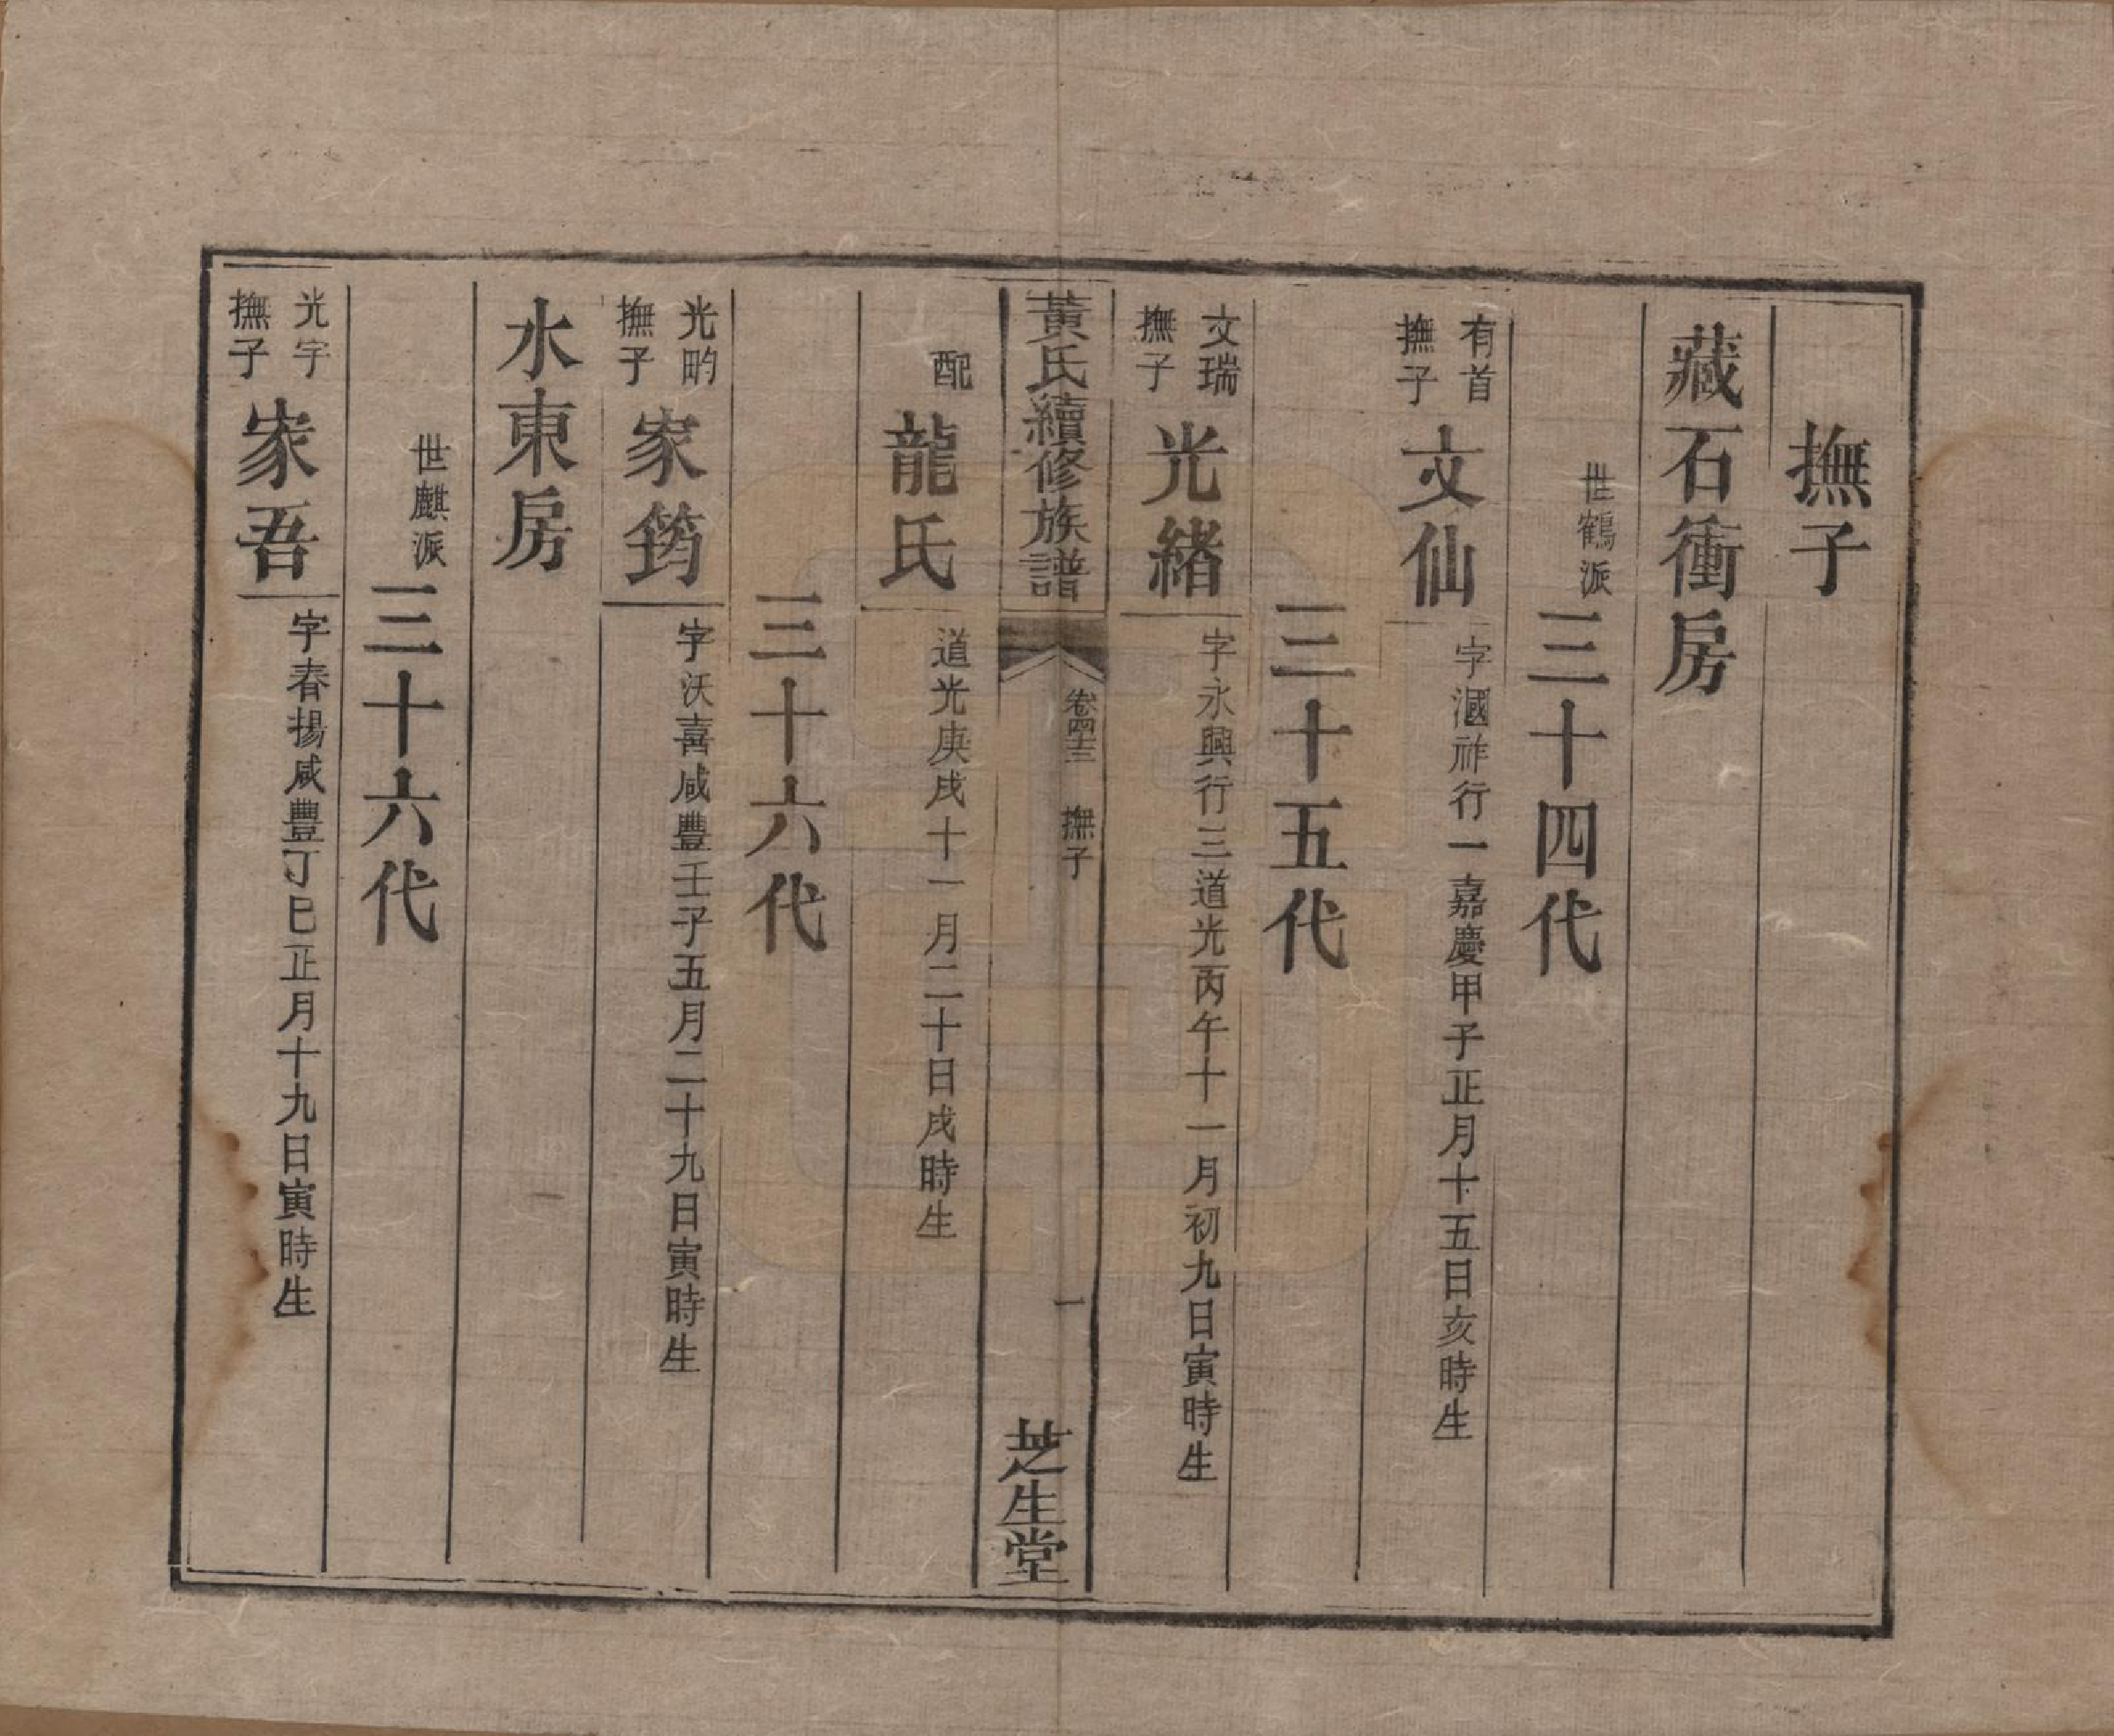 撫子
藏石衝房
世鶴派
三十四代
有首
撫子
文仙
字漍祚行一嘉慶甲子正月十五日亥時生
三十五代
文瑞
撫子
光緒
字永興行三道光丙午十一月初九日寅時生
黃氏續修族譜
卷四十三 撫子
一
芝生堂
配
龍氏
道光庚戌十一月二十日戌時生
三十六代
光畇
撫子
家筠
字沃喜咸豐壬子五月二十九日寅時生
水東房
世麒派
三十六代
光宇
撫子
家吾
字春揚咸豐丁巳正月十九日寅時生